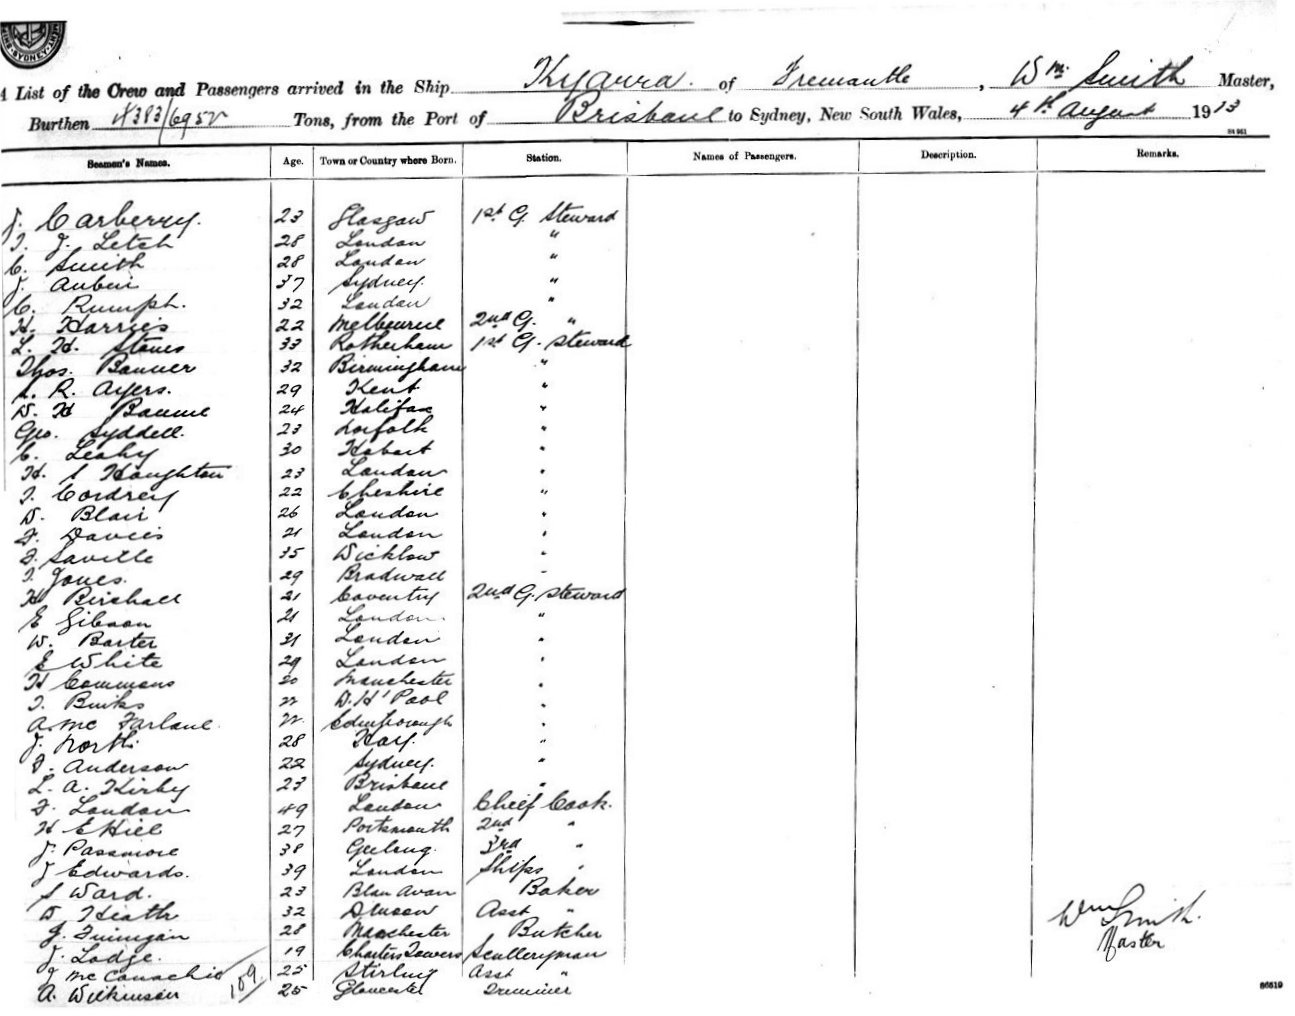 SYDNEY
A List of the Crew and Passengers arrived in the Ship Kyarra. of Fremantle, Wm. Smith Master,
Burthen 4383/6952 Tons, from the Port of Brisbane to Sydney, New South Wales, 4th August 1913
Seamen's Names. Age. Town or Country where Born. Station. Names of Passengers. Description. Remarks.
J. Carberry. 23 Glasgow 1st G. Steward
T. J. Letch 28 London "
C. Smith 28 London "
J. Aubin 37 Sydney. "
C. Rumph. 32 London "
H. Harries 22 Melbourne 2nd G. "
L. H. Stones 33 Rotherham 1st G. Steward
Thos. Banner 32 Birmingham "
R. Ayers. 29 Kent "
D. H Baume 24 Halifax "
Geo. Syddell. 23 Norfolk "
C. Leahy 30 Hobart "
H. Houghton 23 London "
T. Cordrey 22 Cheshire "
D. Blair 26 London "
F. Davies 21 London "
F. Saville 35 Wicklow "
T. Jones. 29 Bradwall "
H Birchall 21 Coventry 2nd G. Steward
E Gibson 21 London. "
W. Barter 31 London "
E White 29 London "
H Commons 20 Manchester "
T. Binks 22 D. H'Pool "
A. Mc Farlane 22. Edinborough "
J. North 28 Hay. "
F. Anderson 22 Sydney. "
L. A. Kirby 23 Brisbane "
F. London 49 London Chief Cook.
H E Hill 27 Portsmouth 2nd "
J. Passmore 38 Geelong. 3rd "
J Edwards. 39 London Ships "
S Ward. 23 Blan Avon Baker
D Heath 32 Asst "
J. Finnigan 28 Manchester Butcher
J. Lodge. 19 Charters Towers Sculleryman
J McConachie 25 Stirling Asst "
A. Wilkinson 25 Gloucester Trimmer
109
Wm Smith.
Master
86519